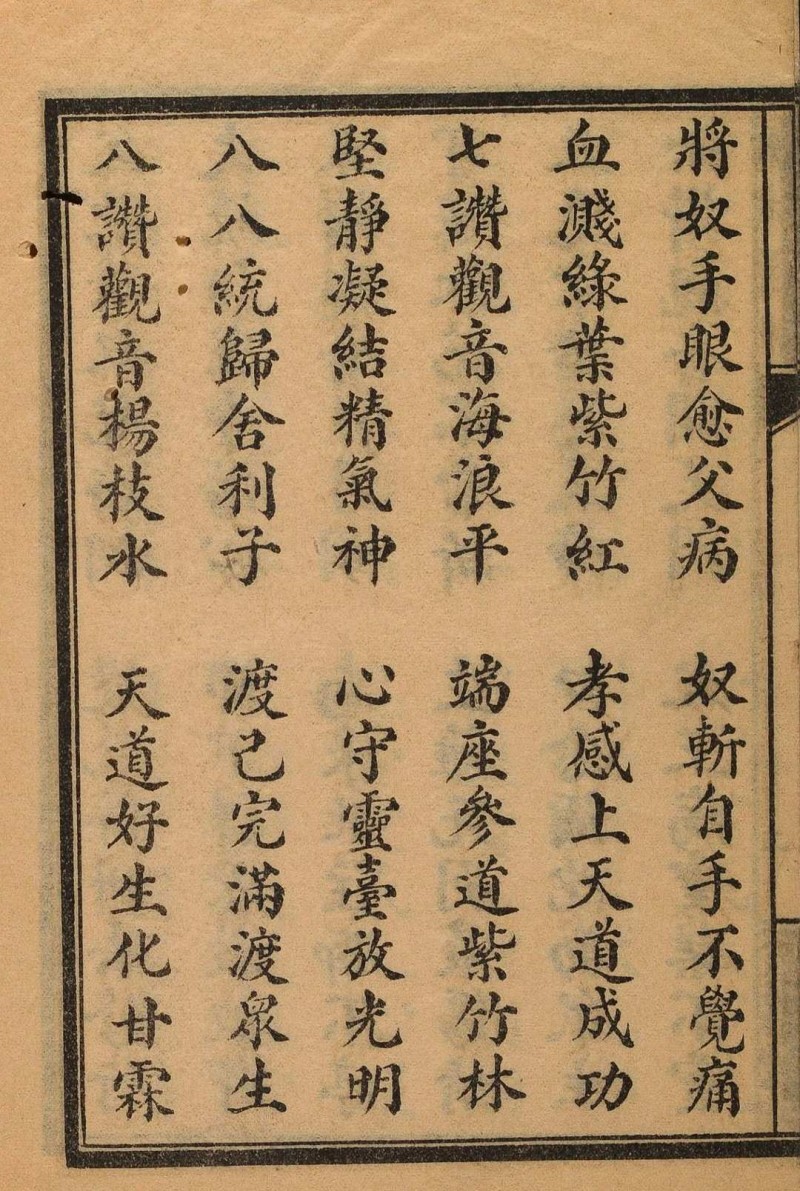 將奴手眼愈父病　奴斬自手不覺痛
血濺綠葉紫竹紅　孝感上天道成功
七讚觀音海浪平　端座參道紫竹林
堅靜凝結精氣神　心守靈臺放光明
八八統歸舍利子　渡己完滿渡眾生
八讚觀音楊枝水　天道好生化甘霖